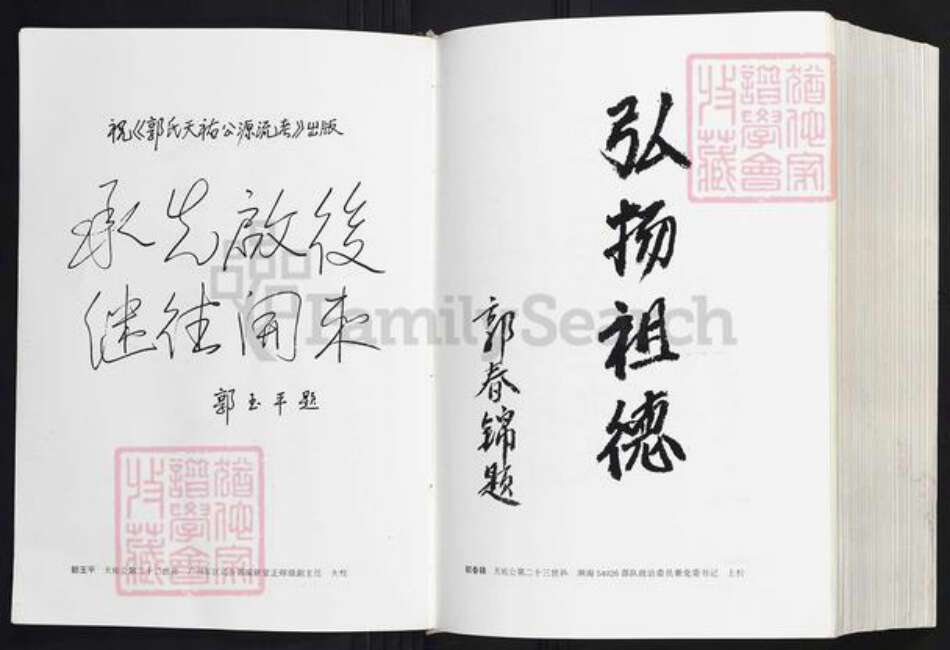 祝《郭氏天祐公源流考》出版
承先啟後
继往開来
郭玉平题
郭玉平 天祐公第二十二世孙 副主任 大校
弘扬祖德
郭春锦题
郭春锦 天祐公第二十三世孙 54026部队政治委员兼党委书记 上校
猶他家譜學會收藏
猶他家譜學會收藏
FamilySearch